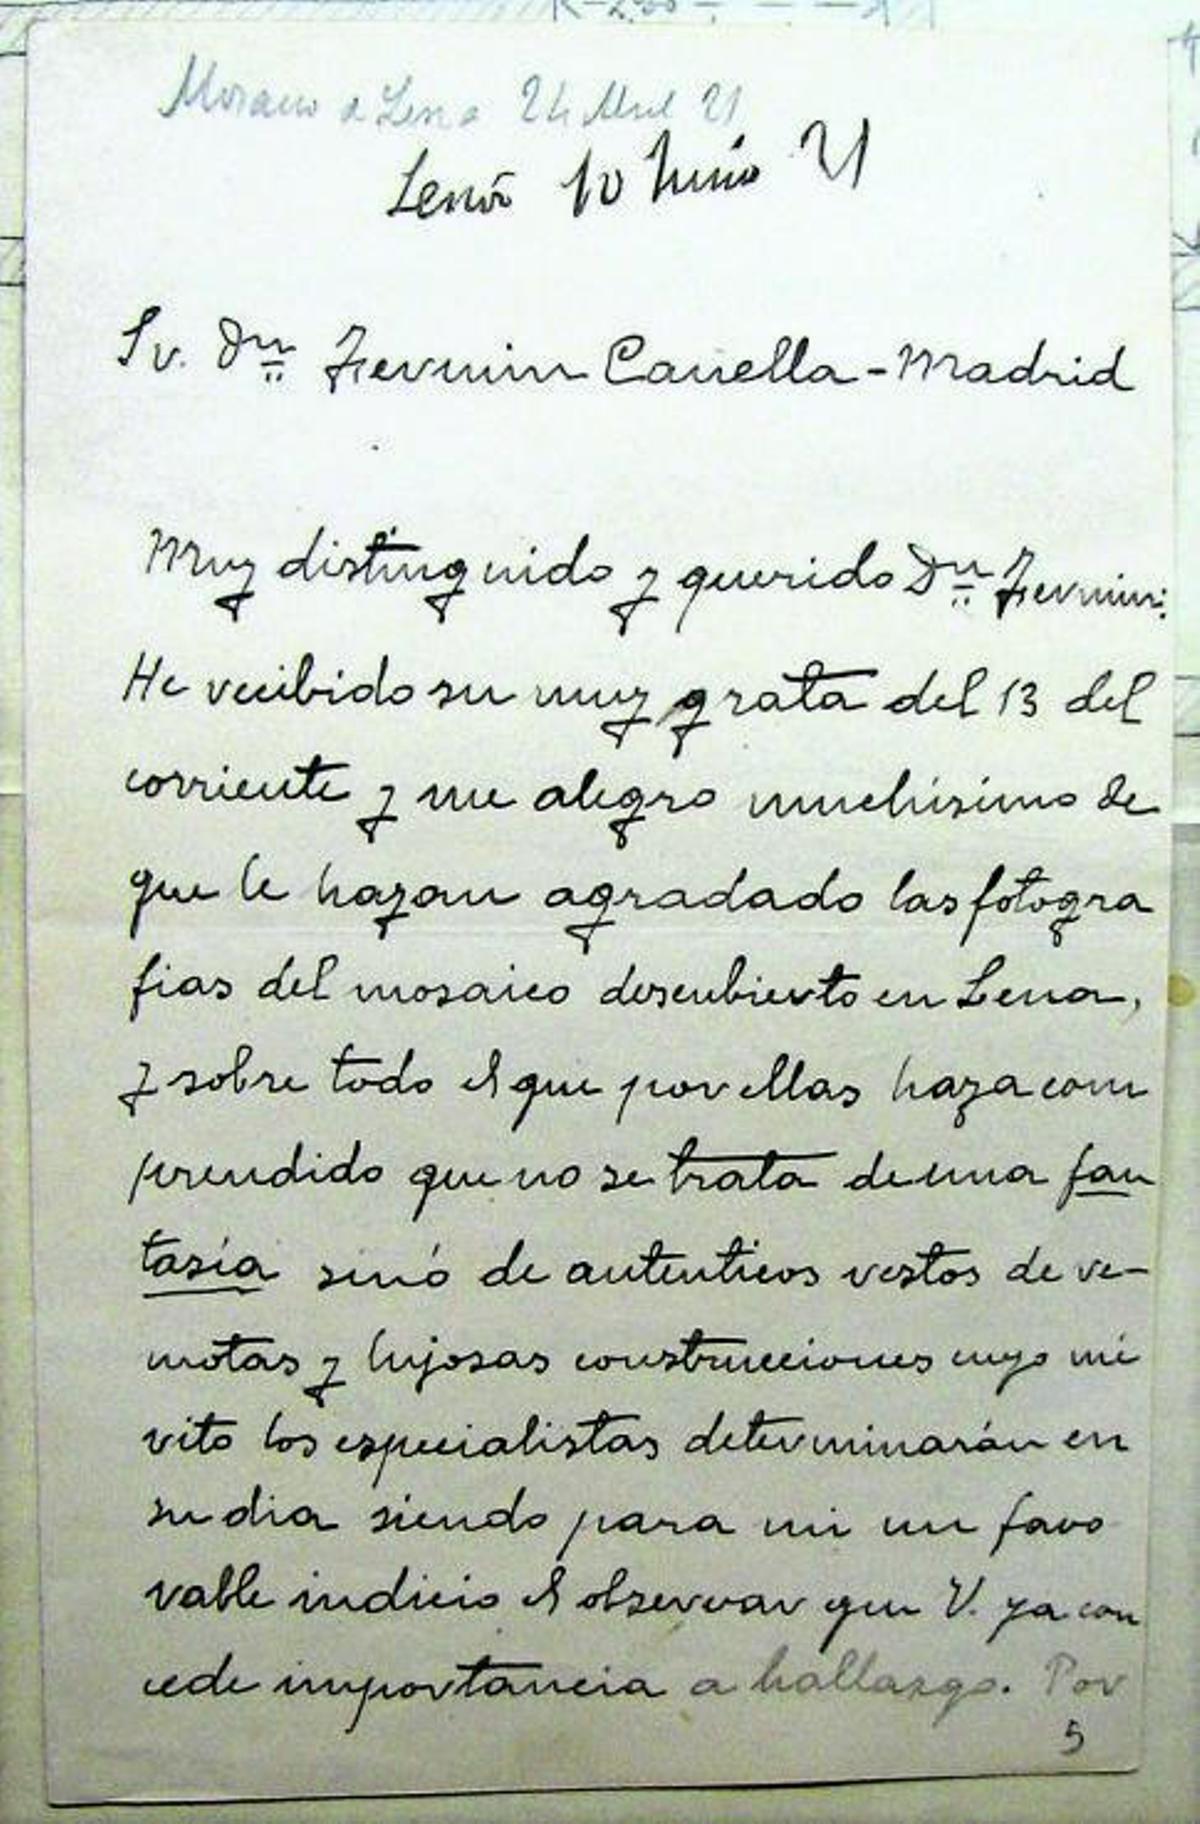 a Lena 24 Abril 21
Lena 10 Junio 21
Sr. Dn Fermin Canella - Madrid
Muy distinguido y querido Dn Fermin:
He recibido su muy grata del 13 del
corriente y me alegro muchisimo de
que le hayan agradado las fotogra
fias del mosaico descubierto en Lena,
y sobre todo el que por ellas haya com
prendido que no se trata de una fan
tasía sinó de autenticos restos de re-
motas y lujosas construcciones cuyo mé
rito los especialistas determinarán en
su dia siendo para mi un favo
rable indicio el observar que V. ya con
cede importancia a hallazgo. Por
5